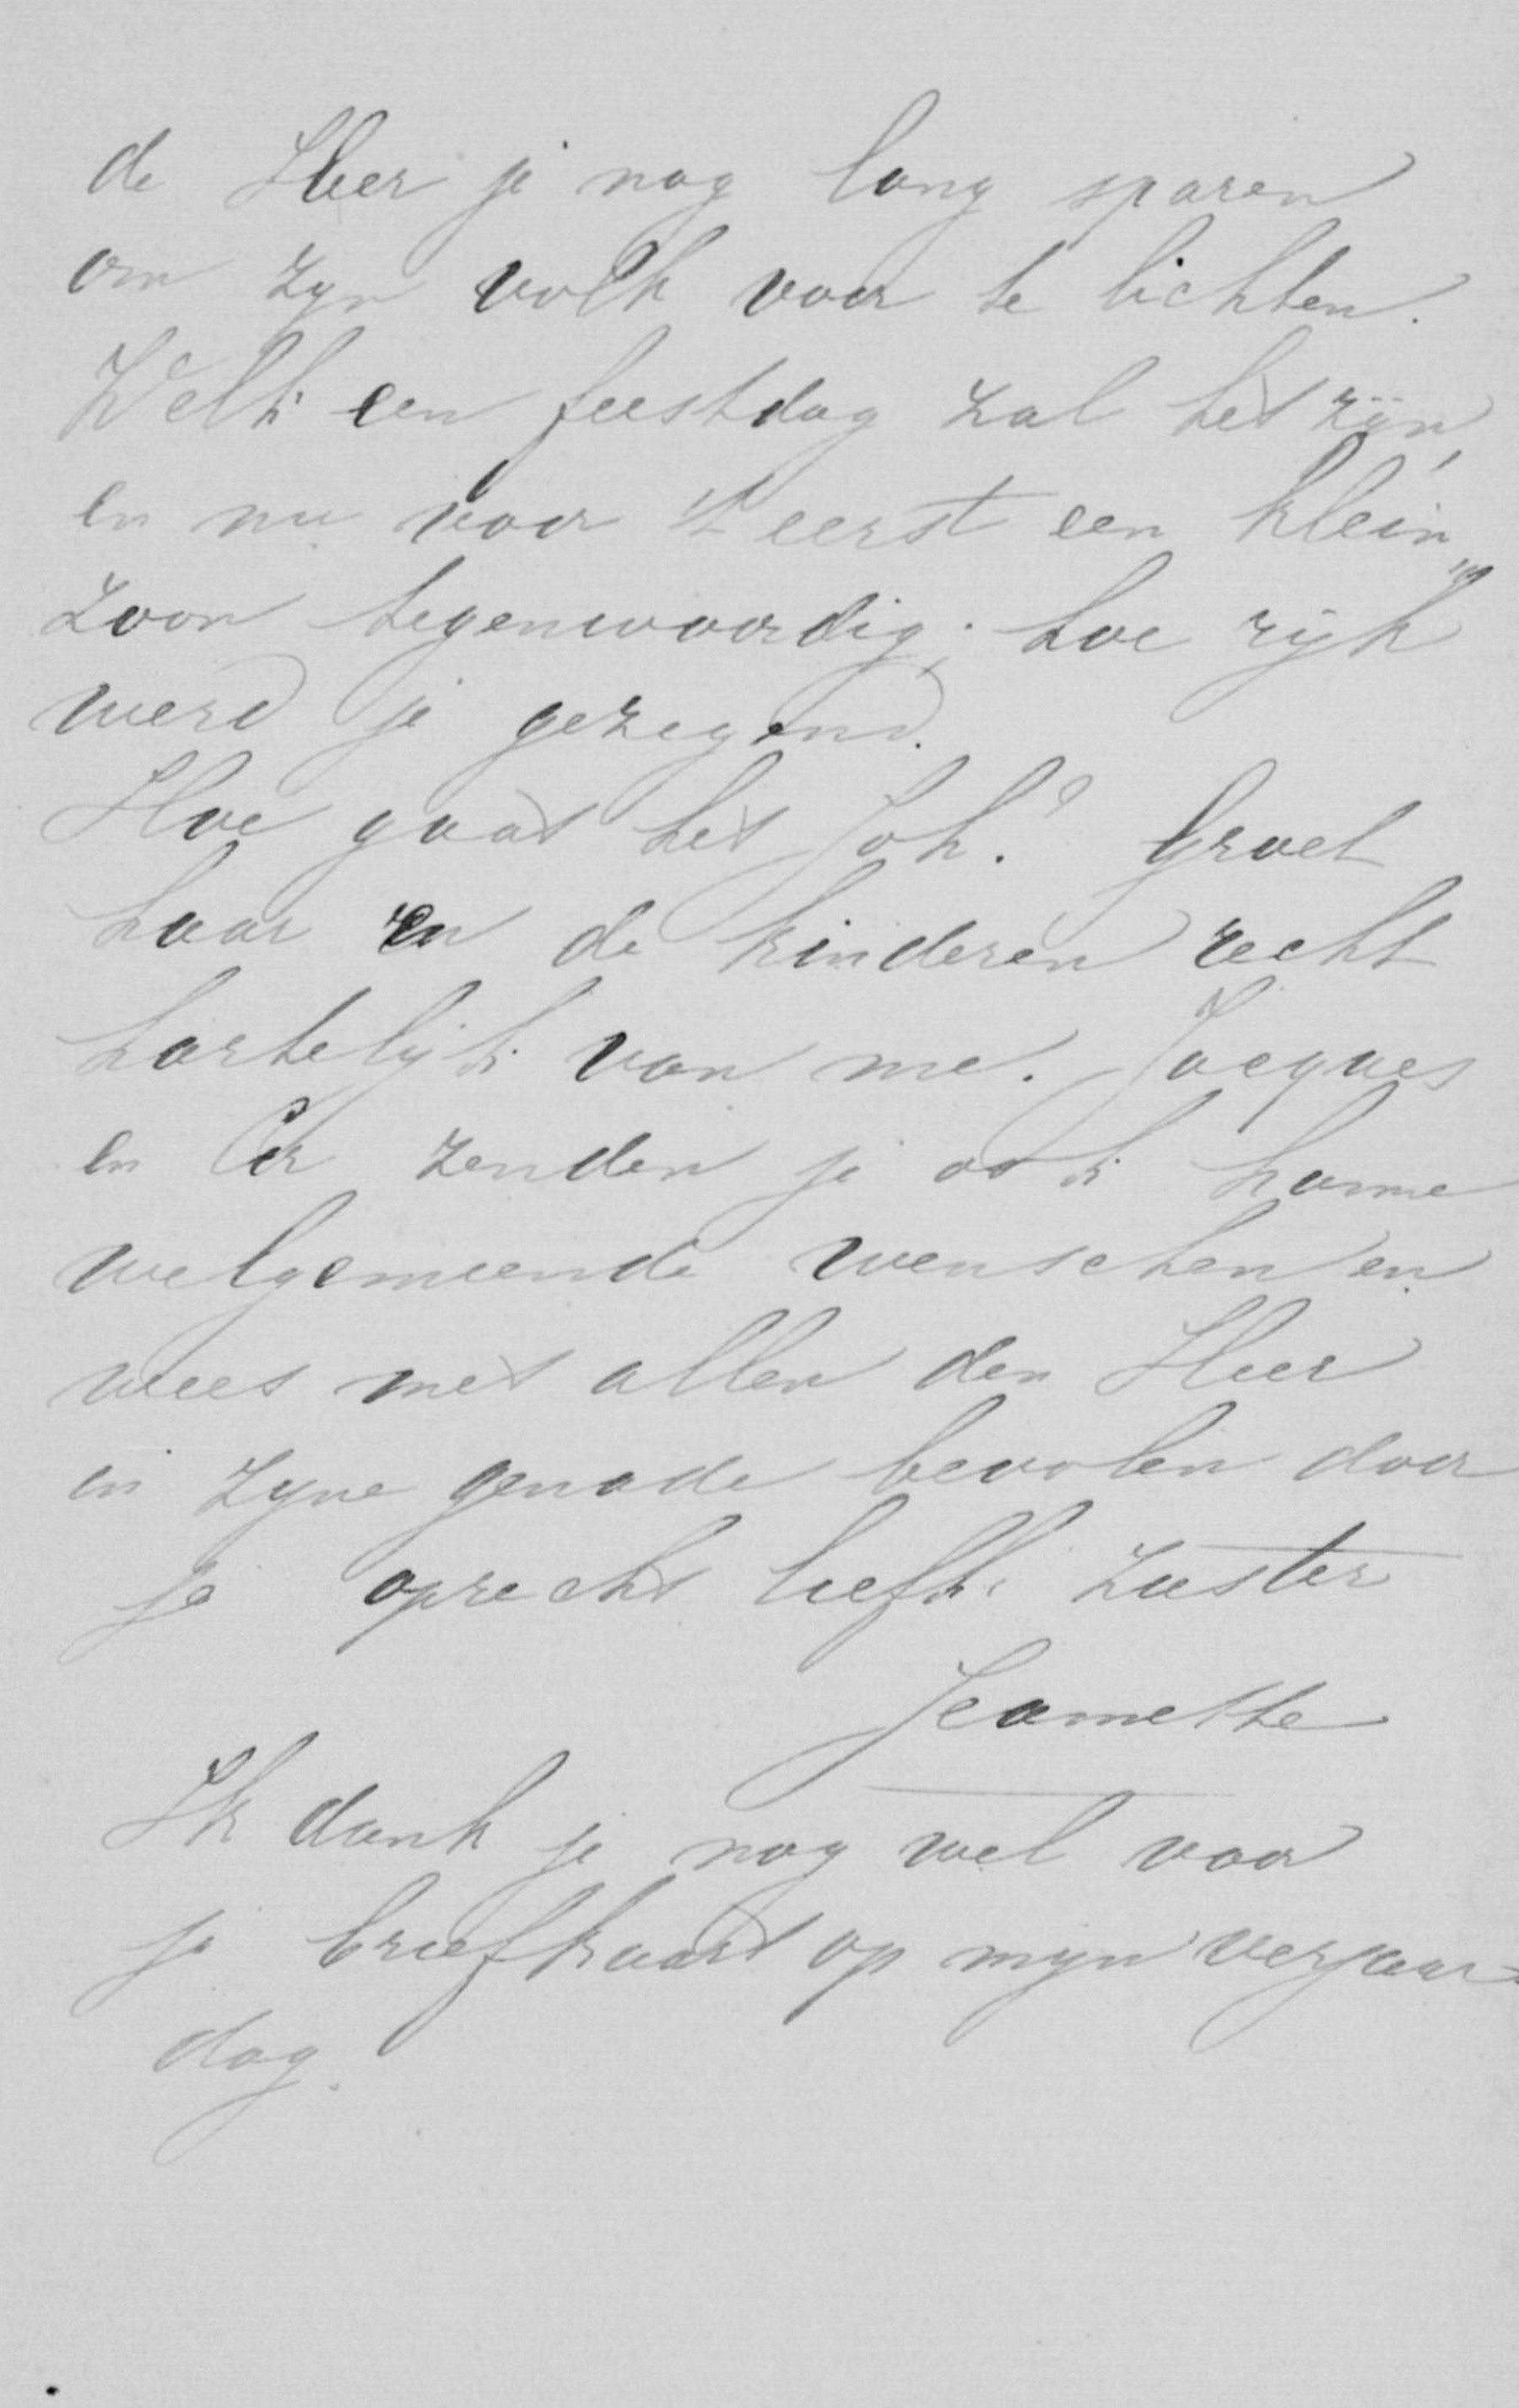 de Heer je nog lang sparen
om zyn volk voor te lichten.
Welk een feestdag zal het zijn,
en nu voor 't eerst een klein„
zoon tegenwoordig; hoe ryk
werd je gezegend.
Hoe gaat het Joh.? Groet
haar en de kinderen recht
hartelijk van me. Jacques
en Cor zenden je ook hunne
welgemeende wenschen en
wees met allen den Heer
in zyne genade bevolen door
je oprecht liefh. zuster
Jeannette
Ik dank je nog wel voor
je briefkaart op myn verjaar=
dag.